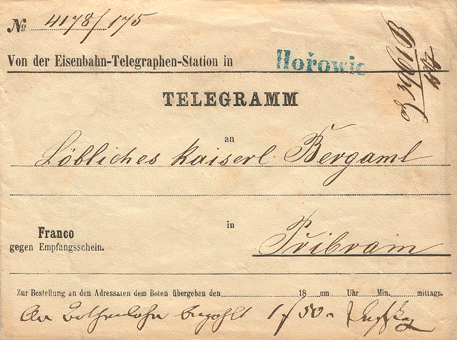 No 4178/175
Von der Eisenbahn-Telegraphen-Station in Hořowic
TELEGRAMM
an
Löbliches kaiserl. Bergaml
in
Franco
Přibram
gegen Empfangsschein.
Zur Bestellung an den Adressaten dem Boten übergeben den 18 um Uhr Min. mittags.
An Bothenlohn bezahlt 1/50